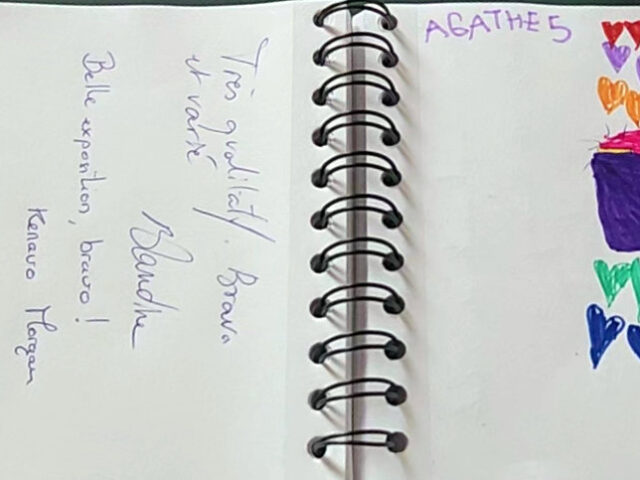 Très qualitatif. Bravo
et varié
Blandine
Belle exposition, bravo !
Kenavo Morgan
AGATHE 5